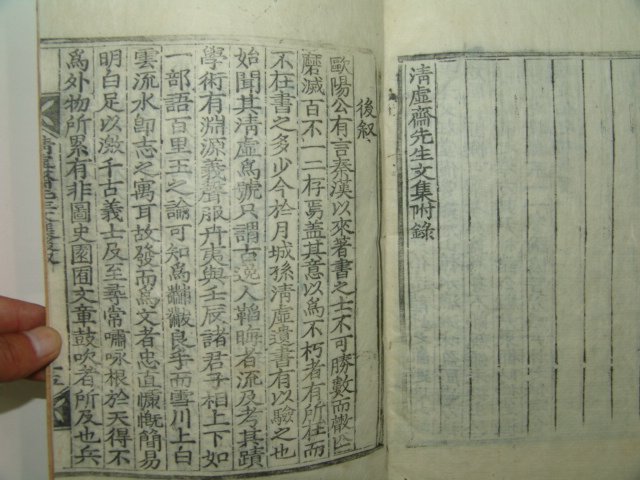 清虛齋先生文集附錄
後叙
歐陽公有言秦漢以來著書之士不可勝數而散亡
磨滅百不一二存焉盖其意以爲不朽者有所在而
不在書之多少今於月城孫清虛遺書有以驗之也
始聞其清虛爲號只謂古逸人韜晦者流及考其蹟
學術有淵源義聲服丹夷與壬辰諸君子相上下如
一部語百里王之論可知爲黼黻良手而雪川上白
雲流水卽志之寓耳故發而爲文者忠直慷慨簡易
明白足以激千古義士及至尋常嘯咏根於天得不
爲外物所累有非圖史園囿文章鼓吹者所及也兵